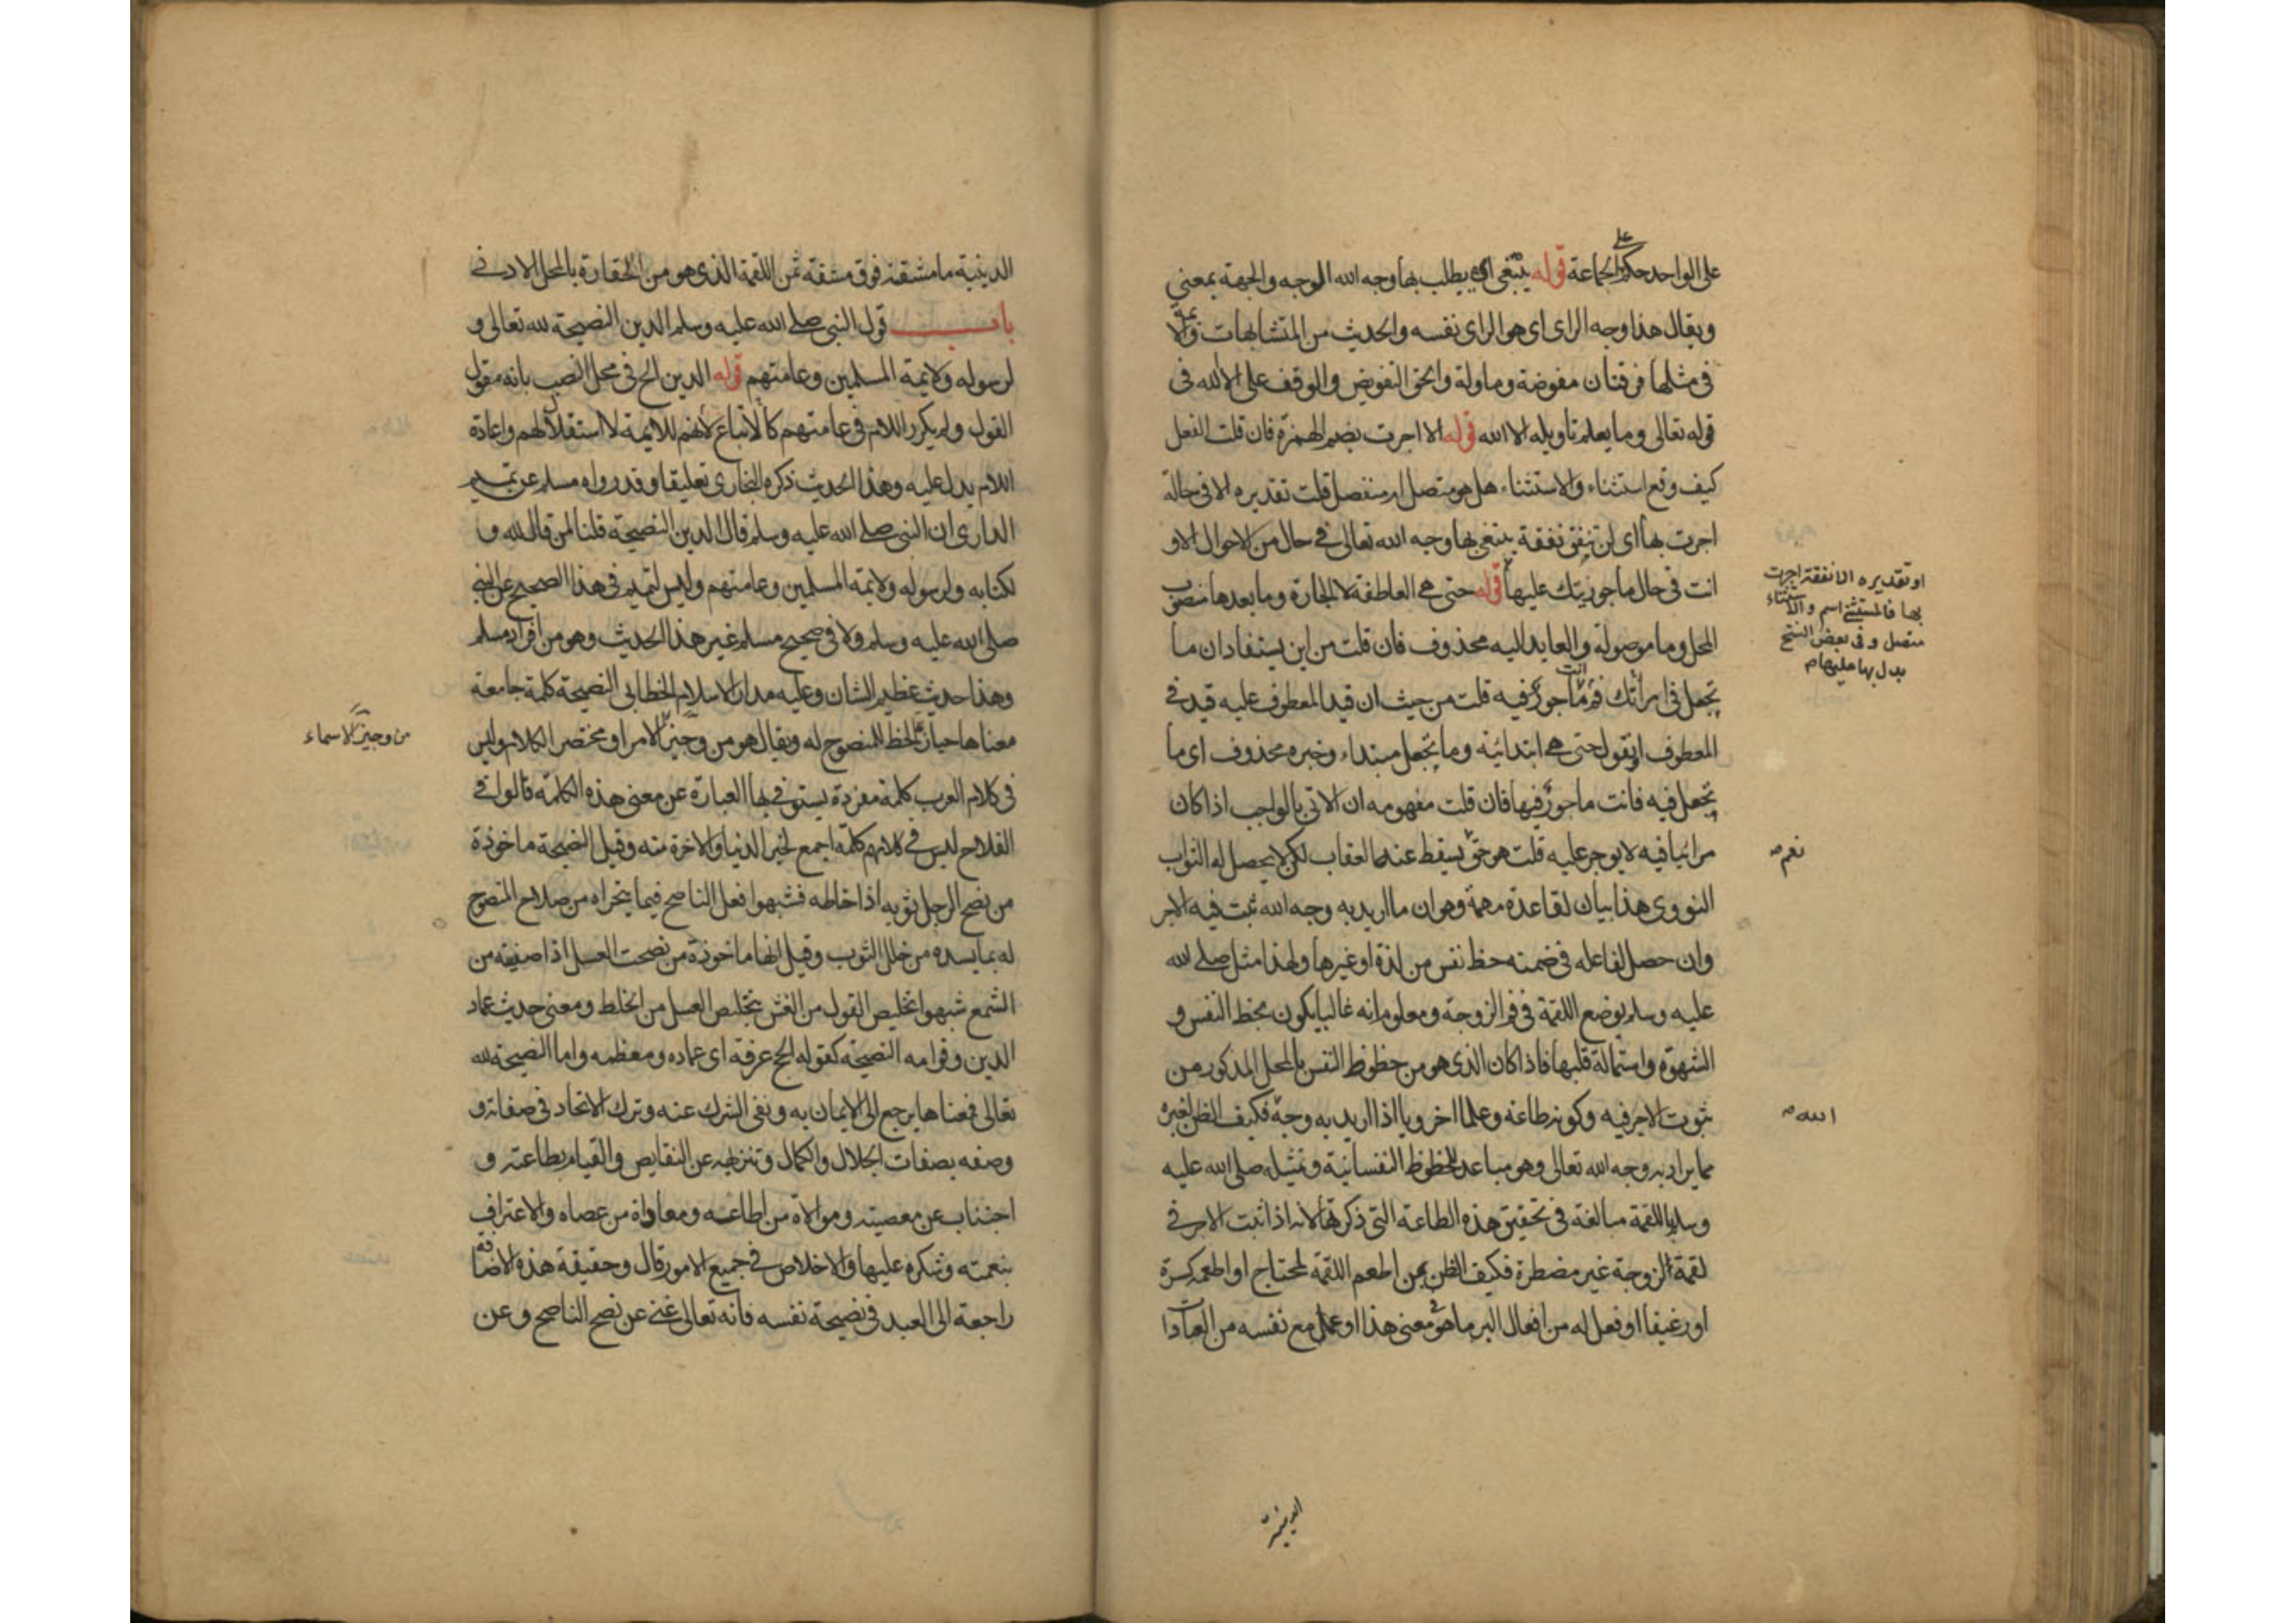 على الواحد حكم على الجماعة قوله يبتغي اي يطلب بها وجه الله الوجه والجهة بمعنى
ويقال هذا وجه الراى اى هو الراى نفسه والحديث من المتشابهات والامة
فى مثلها فرقتان مفوضة وماولة والحق التفويض والوقف على الا لله فى
قوله تعالى وما يعلم تاويله الا الله قوله الا اجرت بضم الهمزة فان قلت الفعل
كيف وقع استثناء والاستثناء هل هو متصل او منفصل قلت تقديره الا فى حالة
اجرت بها اى لن تنفق نفقة يبتغى بها وجه الله تعالى فى حال من الاحوال الا و
انت فى حال ماجوريتك عليها قوله حتى هى العاطفة لا الجارة وما بعدها منصوب
المحل وما موصولة والعايد اليه محذوف فان قلت من اين يستفاد ان ما
تجعل فى امرأتك فانت ماجور فيه قلت من حيث ان قيد المعطوف عليه قيد فى
المعطوف او تقول حتى هى ابتدائية وما تجعل مبتداء وخبره محذوف اى ما
تجعل فيه فانت ماجور فيها فان قلت مفهومه ان الاتى بالواجب اذا كان
مرائيا فيه لا يوجر عليه قلت هو حق يسقط عنه العقاب لكن لا يحصل له الثواب
النووى هذا بيان لقاعدة مهمة وهو ان ما اريد به وجه الله ثبت فيه الاجر
وان حصل لفاعله فى ضمنه حظ نفس من لذة او غيرها ولهذا مثل صلى الله
عليه وسلم بوضع اللقمة فى فم الزوجة ومعلوم انه غالبا يكون بحظ النفس و
الشهوة واستمالة قلبها فاذا كان الذى هو من حظوظ النفس بالمحل المذكور من
ثبوت الاجر فيه وكونه طاعة وعملا اخرويا اذا اريد به وجه فكيف الظن لغيره
مما يراد به وجه الله تعالى وهو مباعد للحظوظ النفسانية وتمثيله صلى الله عليه
وسلم باللقمة مبالغة فى تحقيق هذه الطاعة التى ذكرتها لانه اذا ثبت الاجر فى
لقمة الزوجة غير مضطرة فكيف الظن بمن اطعم اللقمة لمحتاج او اطعمه كسرة
او رغيفا او فعل له من افعال البر ما هو فى معنى هذا او عمل مع نفسه من العبادات
او تقديره الا نفقة اجرت
بها فالمستثنى اسم والاستثناء
متصل وفى بعض النسخ
بدل بها عليها
نعم
الله
الدينية
الدينية ما مشقته فوق مشقة ثمن اللقمة الذى هو من الحقارة بالمحل الادنى
باب قول النبى صلى الله عليه وسلم الدين النصيحة لله تعالى و
لرسوله ولايمة المسلمين وعامتهم قوله الدين الخ فى محل النصب بانه مقول
القول ولم يكرر اللام فى عامتهم لانهم كالاتباع للايمة لا استقلال لهم واعادة
اللام يدل عليه وهذا الحديث ذكره البخارى تعليقا وقد رواه مسلم عن تميم
الدارى ان النبى صلى الله عليه وسلم قال الدين النصيحة قلنا لمن قال لله و
لكتابه ولرسوله ولايمة المسلمين وعامتهم وليس لتميم فى هذا الصحيح عن النبى
صلى الله عليه وسلم ولا فى صحيح مسلم غير هذا الحديث وهو من افراد مسلم
وهذا حديث عظيم الشان وعليه مدار الاسلام الخطابى النصيحة كلمة جامعة
معناها حيازة الحظ للمنصوح له ويقال هو من وجيز الامر او مختصر الكلام وليس
فى كلام العرب كلمة مفردة يستوفى بها العبارة عن معنى هذه الكلمة قالوا فى
الفلاح ليس فى كلامهم كلمة اجمع لخير الدنيا والاخرة منه وقيل النصيحة ماخوذة
من نصح الرجل ثوبه اذا خاطه فشبهوا فعل الناصح فيما يتحراه من صلاح المنصوح
له بما يسده من خلل الثوب وقيل انها ماخوذة من نصحت العسل اذا صفيته من
الشمع شبهوا تخليص القول من الغش بتخليص العسل من الخلط ومعنى حديث عماد
الدين وقوامه النصيحة كقوله الحج عرفة اى عماده ومعظمه واما النصيحة لله
تعالى فمعناها يرجع الى الايمان به ونفى الشرك عنه وترك الالحاد فى صفاته و
وصفه بصفات الجلال والكمال وتنزيهه عن النقايص والقيام بطاعته و
اجتناب عن معصيته وموالاة من اطاعه ومعاداة من عصاه والاعتراف
بنعمته وشكره عليها والاخلاص فى جميع الامور قال وحقيقة هذه الاضافة
راجعة الى العبد فى نصيحة نفسه فانه تعالى غنى عن نصح الناصح وعن
من وجيز الاسماء